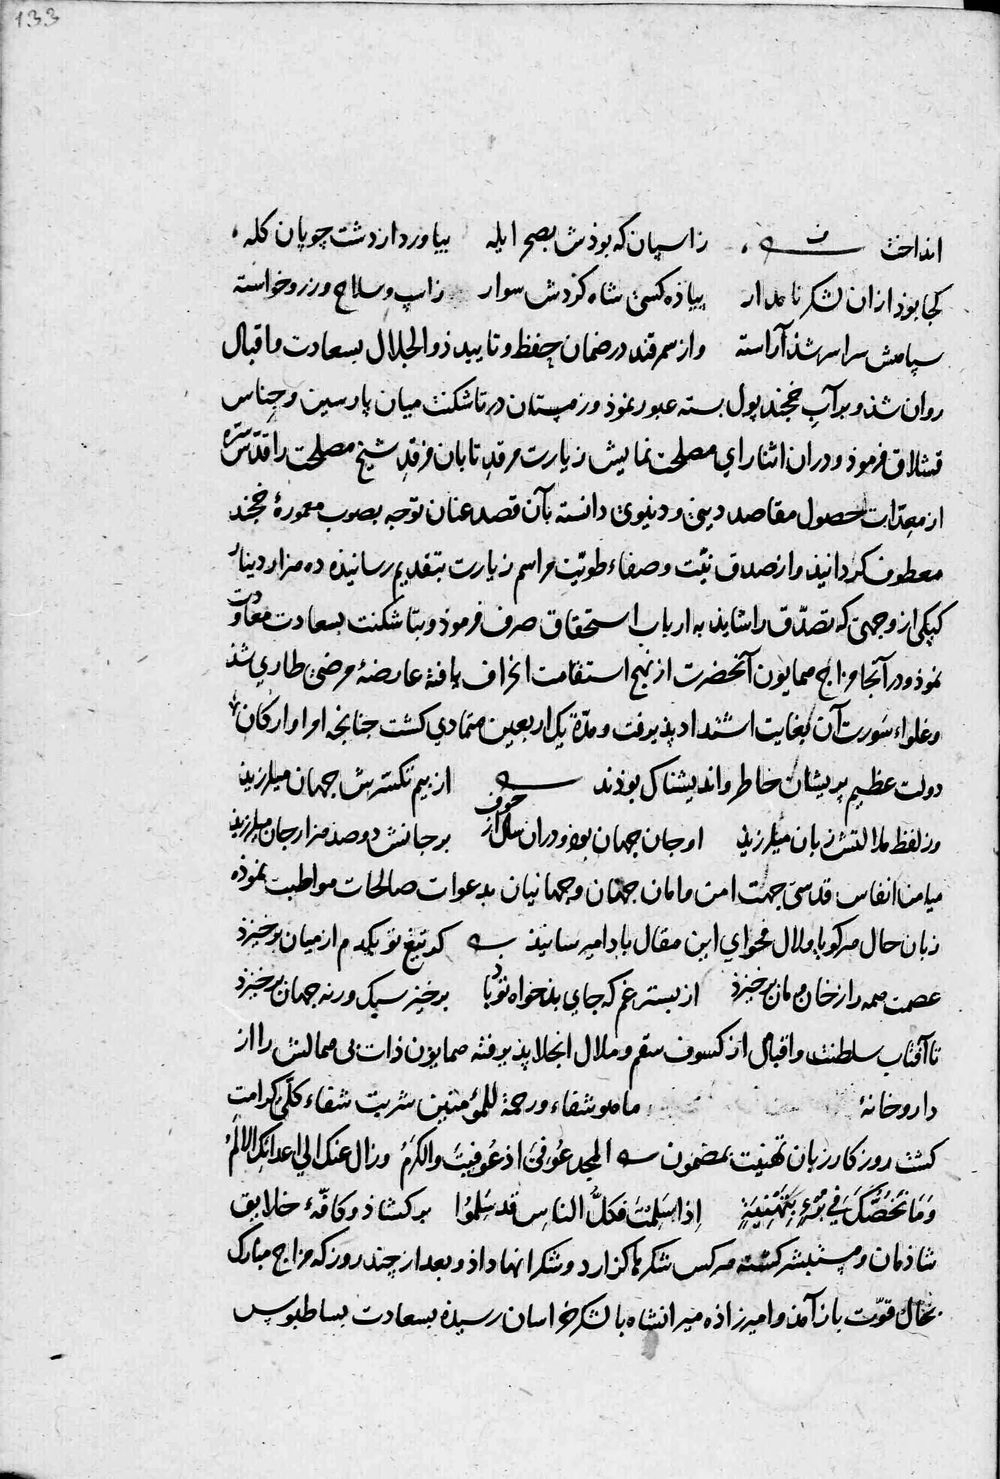 133
انداخت ز اسپان که بوذش بصحرا یله بیاورد از دشت چوپان کله
کجا بوذ ازان لشکر نامدار پیاذه کسی شاه کردش سوار ز اسپ و سلاح و زر و خواسته
سپاهش سراسر شذ آراسته و از سمرقند در ضمان حفظ و تایید ذو الجلال بسعادت و اقبال
روان شذ و بر آب خجند پول بسته عبور نموذ و زمستان در تاشکنت میان پارسین و چناس
قشلاق فرموذ و دران اثنا رای مصلحت نمایش زیارت مرقد تابان فرقد شیخ مصلحت را قدّس سرّه
از معدّات حصول مقاصد دینی و دنیوی دانسته بآن قصد عنان توجه بصوب معمورهٔ خجند
معطوف کردانیذ و از صدق نیّت و صفاء طویّت مراسم زیارت بتقدیم رسانیذه ده هزار دینار
کپکی از وجهی که تصدّق را شایذ به ارباب استحقاق صرف فرموذ و بتاشکنت بسعادت معاودت
نموذ و در آنجا مزاج همایون آنحضرت از نهج استقامت انحراف یافته عارضهٔ مرضی طاری شذ
و غلواء سورت آن بغایت اشتداد پذیرفت و مدّة یک اربعین متمادی کشت جنانچه امرا و ارکان
دولت عظیم پریشان خاطر و اندیشناک بوذند از بیم تکسرش جهان میلرزیذ
وز لفظ ملالتش زبان میلرزیذ او جان جهان بوذ و دران سال از خوف بر جانش دو صد هزار جان میلرزیذ
میامن انفاس قدسی جهت امن و امان جهان و جهانیان بدعوات صالحات مواظبت نموذه
زبان حال هر کو با ملال فحوای این مقال بادا میرسانیذ که تیغ تو یکدم از میان برخیزذ
عصمت همه را ز خان و مان برخیزذ از بستر غم که جای بذخواه تو باد برخیز سبک ورنه جهان برخیزذ
تا آفتاب سلطنت و اقبال از کسوف سقم و ملال انجلا پذیرفته همایون ذات بی همالش را از
داروخانهٔ ما هو شفاء و رحمة للمؤمنین شربت شفاء کلّی کرامت
کشت روزکار زبان تهنیت بمضمون المجد عوفی اذ عوفیت والکرم وزال عنک الی اعدائک الالم
وما نخصّک فی برء بتهنیة اذا سلمت فکلّ الناس قد سلموا برکشاذ و کافّهٔ خلایق
شاذمان و مستبشر کشته هر کس شکرها کزارد و شکرانها داذ و بعد از چند روز که مزاج مبارک
بحال قوّت باز آمذ و امیرزاذه میرانشاه با لشکر خراسان رسیذه بسعادت بساط بوس